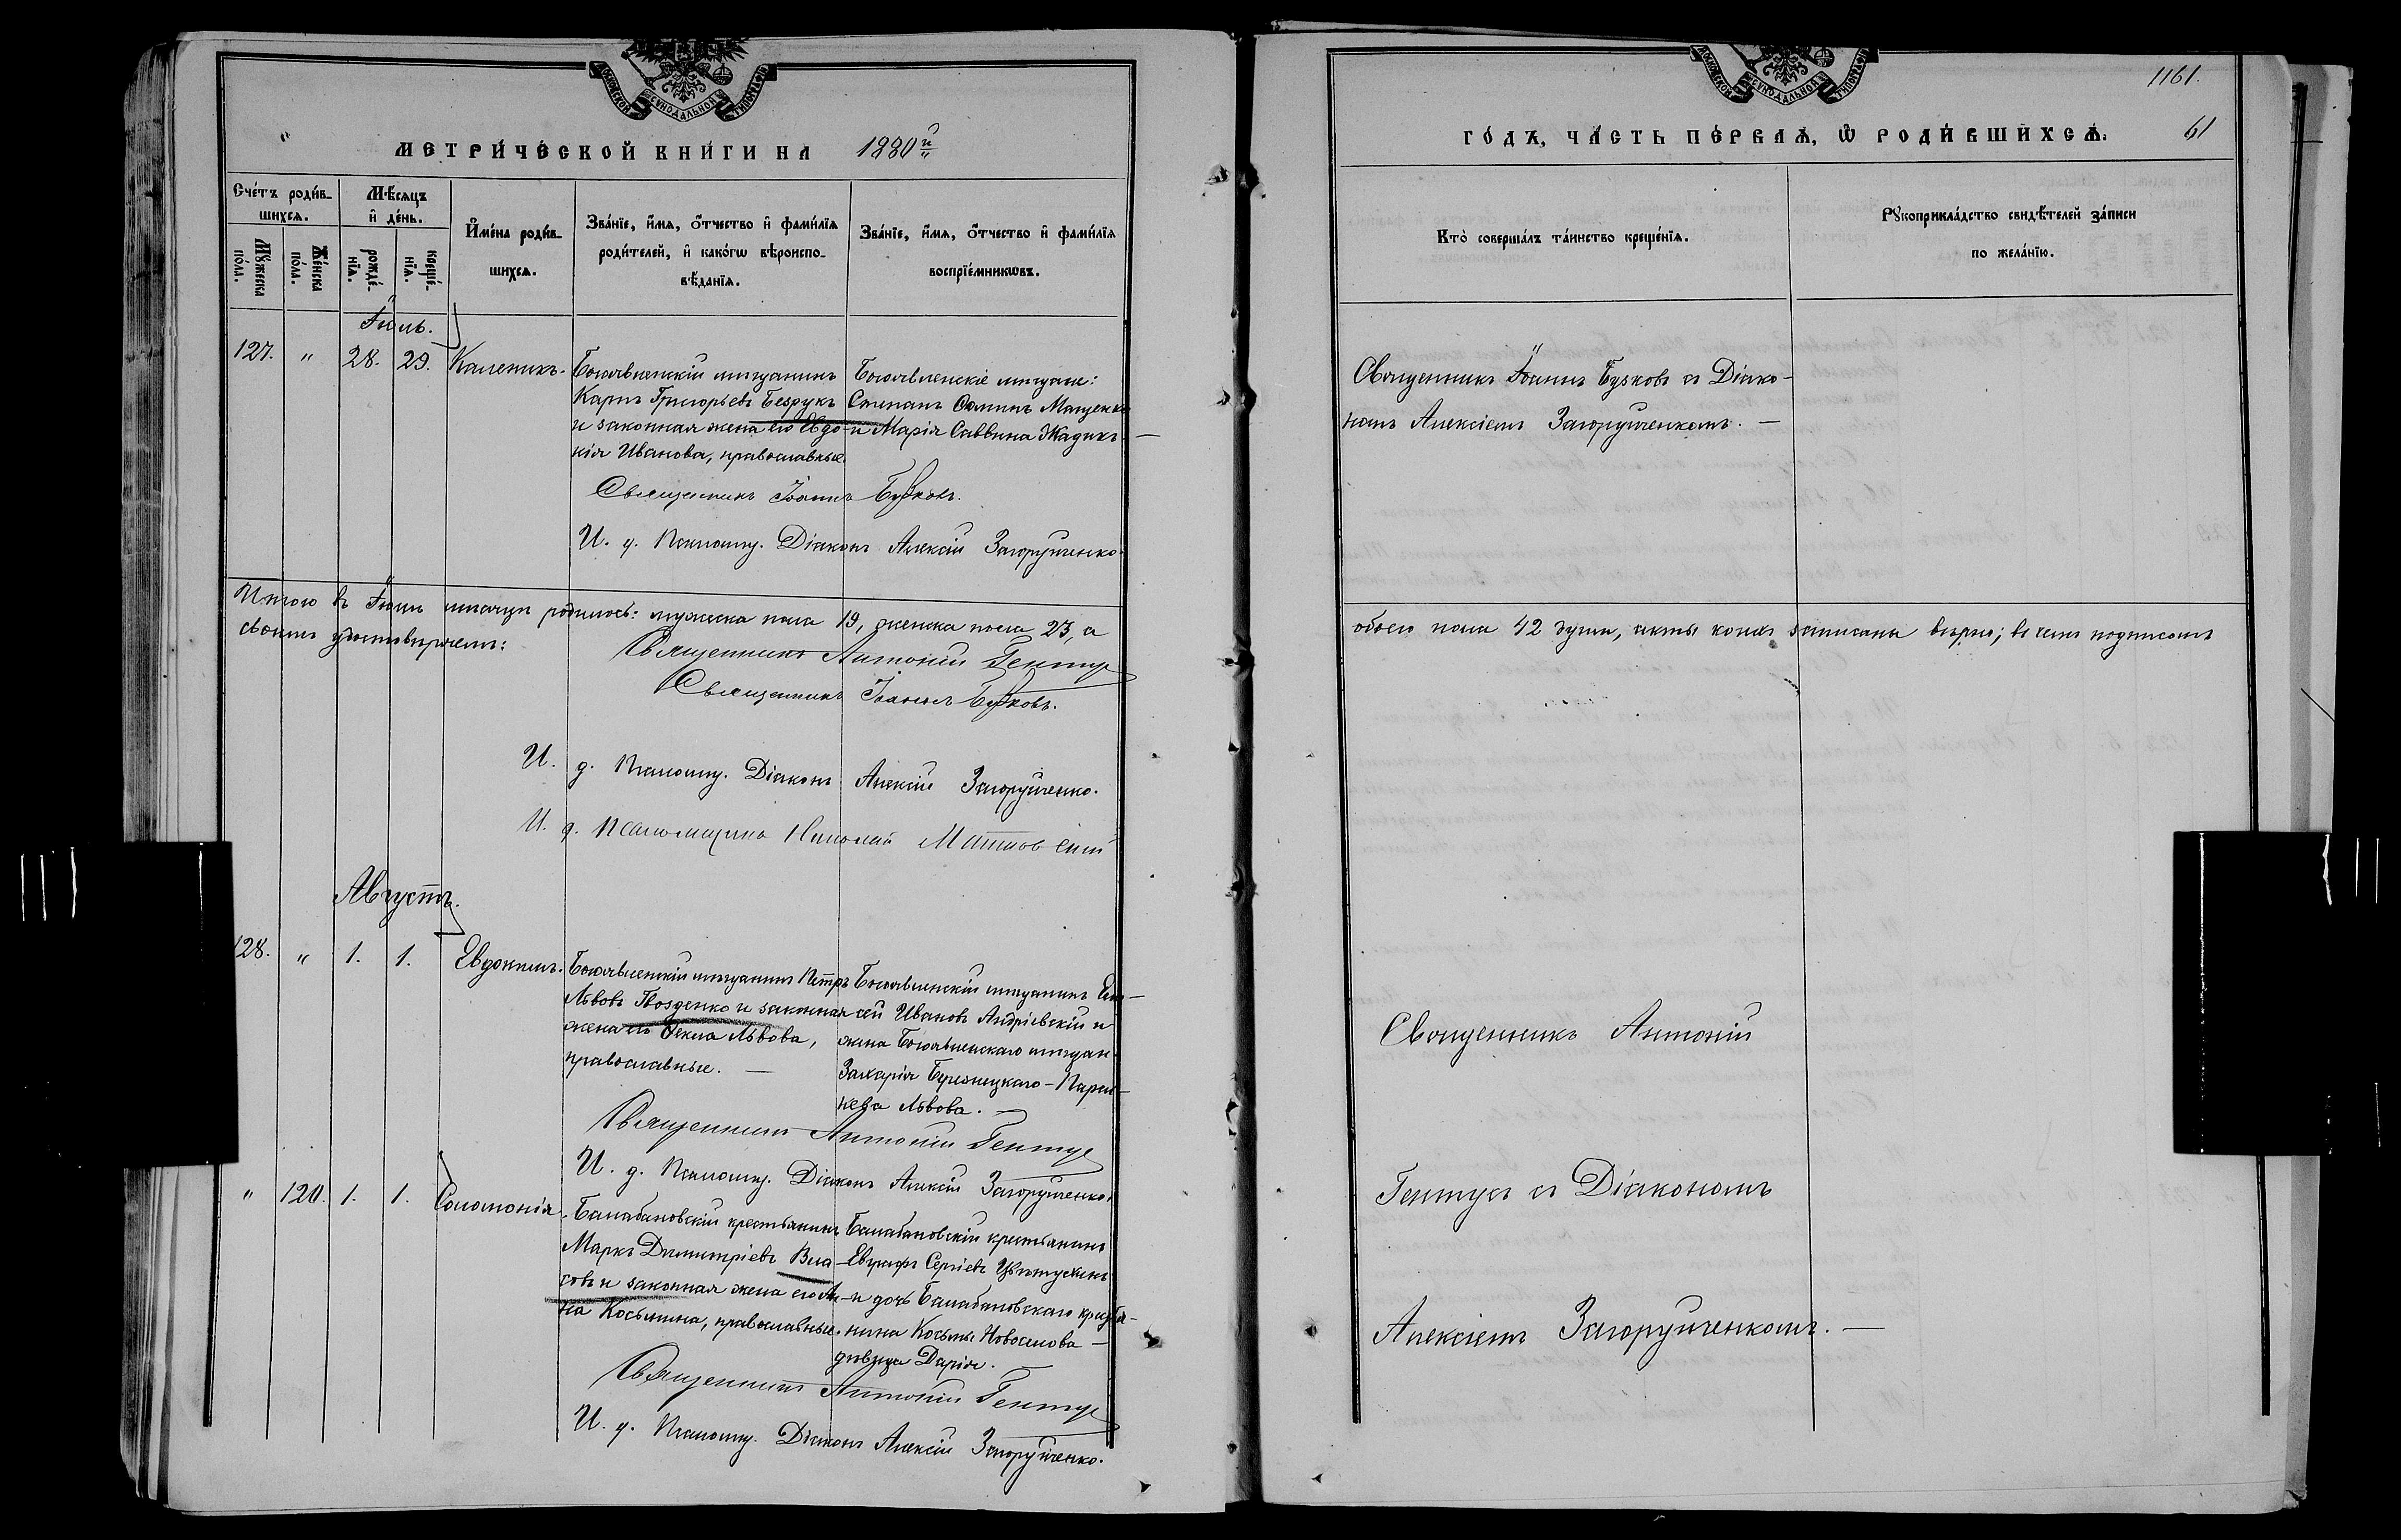 МОСКОВСКОЙ СѴНОДАЛЬНОЙ ТИПОГРАФІИ
МЕТРИ́ЧЕСКОЙ КНИ́ГИ НА 1880й
Сче́тъ роди́в-
шихсѧ.
Мꙋ́жеска
по́ла.
Же́нска
по́ла.
Мѣ́сѧцъ
и҆ де́нь.
рожде́-
нїѧ.
креще́-
нїѧ.
И҆мена̀ роди́в-
шихсѧ.
Зва́нїе, и҆́мѧ, ѻ҆́тчество и҆ фами́лїѧ
роди́телей, и҆ како́гѡ вѣроиспо-
вѣ́данїѧ.
Зва́нїе, и҆́мѧ, ѻ҆́тчество и҆ фами́лїѧ
воспрїе́мникѡвъ.
Іюль.
127. " 28. 29. Каленикъ.
Богоявленскій мѣщанинъ
Карпъ Григорьевъ Безрукъ
и законная жена его Евдо-
кія Иванова, православные.
Богоявленскіе мѣщане:
Степанъ Ѳоминъ Маценко
и Марія Саввина Жадикъ. —
Священникъ Іоаннъ Бузковъ.
И. д. Псаломщ. Діаконъ Алексій Загоруйченко.
Итого въ Іюлѣ мѣсяцѣ родилось: мужеска пола 19, женска пола 23, а
своимъ удостовѣряемъ:
Священникъ Антоній Гентуе
Священникъ Іоаннъ Бузковъ.
И. д. Псаломщ. Діаконъ Алексій Загоруйченко.
И. д. Псаломщика Николай
Августъ.
128. " 1. 1. Евдокимъ.
Богоявленскій мѣщанинъ Петръ
Львовъ Гвозденко и законная
жена его Ѳекла Львова,
православные. —
Богоявленскій мѣщанинъ Ели-
сей Ивановъ Андріевскій и
жена Богоявленскаго мѣщан.
Захарія Бурзницкаго - Парас-
кева Львова. —
Священникъ Антоній Гентуе
И. д. Псаломщ. Діаконъ Алексій Загоруйченко.
" 120. 1. 1. Соломонія.
Балабановскій крестьянинъ
Маркъ Димитріевъ Вла-
совъ и законная жена его Ан-
на Косьмина, православные.
Балабановскій крестьянинъ
Евграфъ Сергіевъ Цвѣтухинъ
и дочь Балабановскаго крестья-
нина Косьмы Новоселова —
дѣвица Дарія.
Священникъ Антоній Гентуе
И. д. Псаломщ. Діаконъ Алексій Загоруйченко.
МОСКОВСКОЙ СѴНОДАЛЬНОЙ ТИПОГРАФІИ
1161.
61
ГО́ДЪ, ЧА́СТЬ ПЕ́РВАѦ, Ѡ҆ РОДИ́ВШИХСѦ.
Кто̀ соверша́лъ та́инство креще́нїѧ.
Рꙋкоприкла́дство свидѣ́телей за́писи
по жела́нїю.
Священникъ Іоаннъ Бузковъ съ Діако-
номъ Алексіемъ Загоруйченкомъ. —
обоего пола 42 души, акты коихъ записаны вѣрно; въ чемъ подписомъ
Священникъ Антоній
Гентуе съ Діакономъ
Алексіемъ Загоруйченкомъ. —